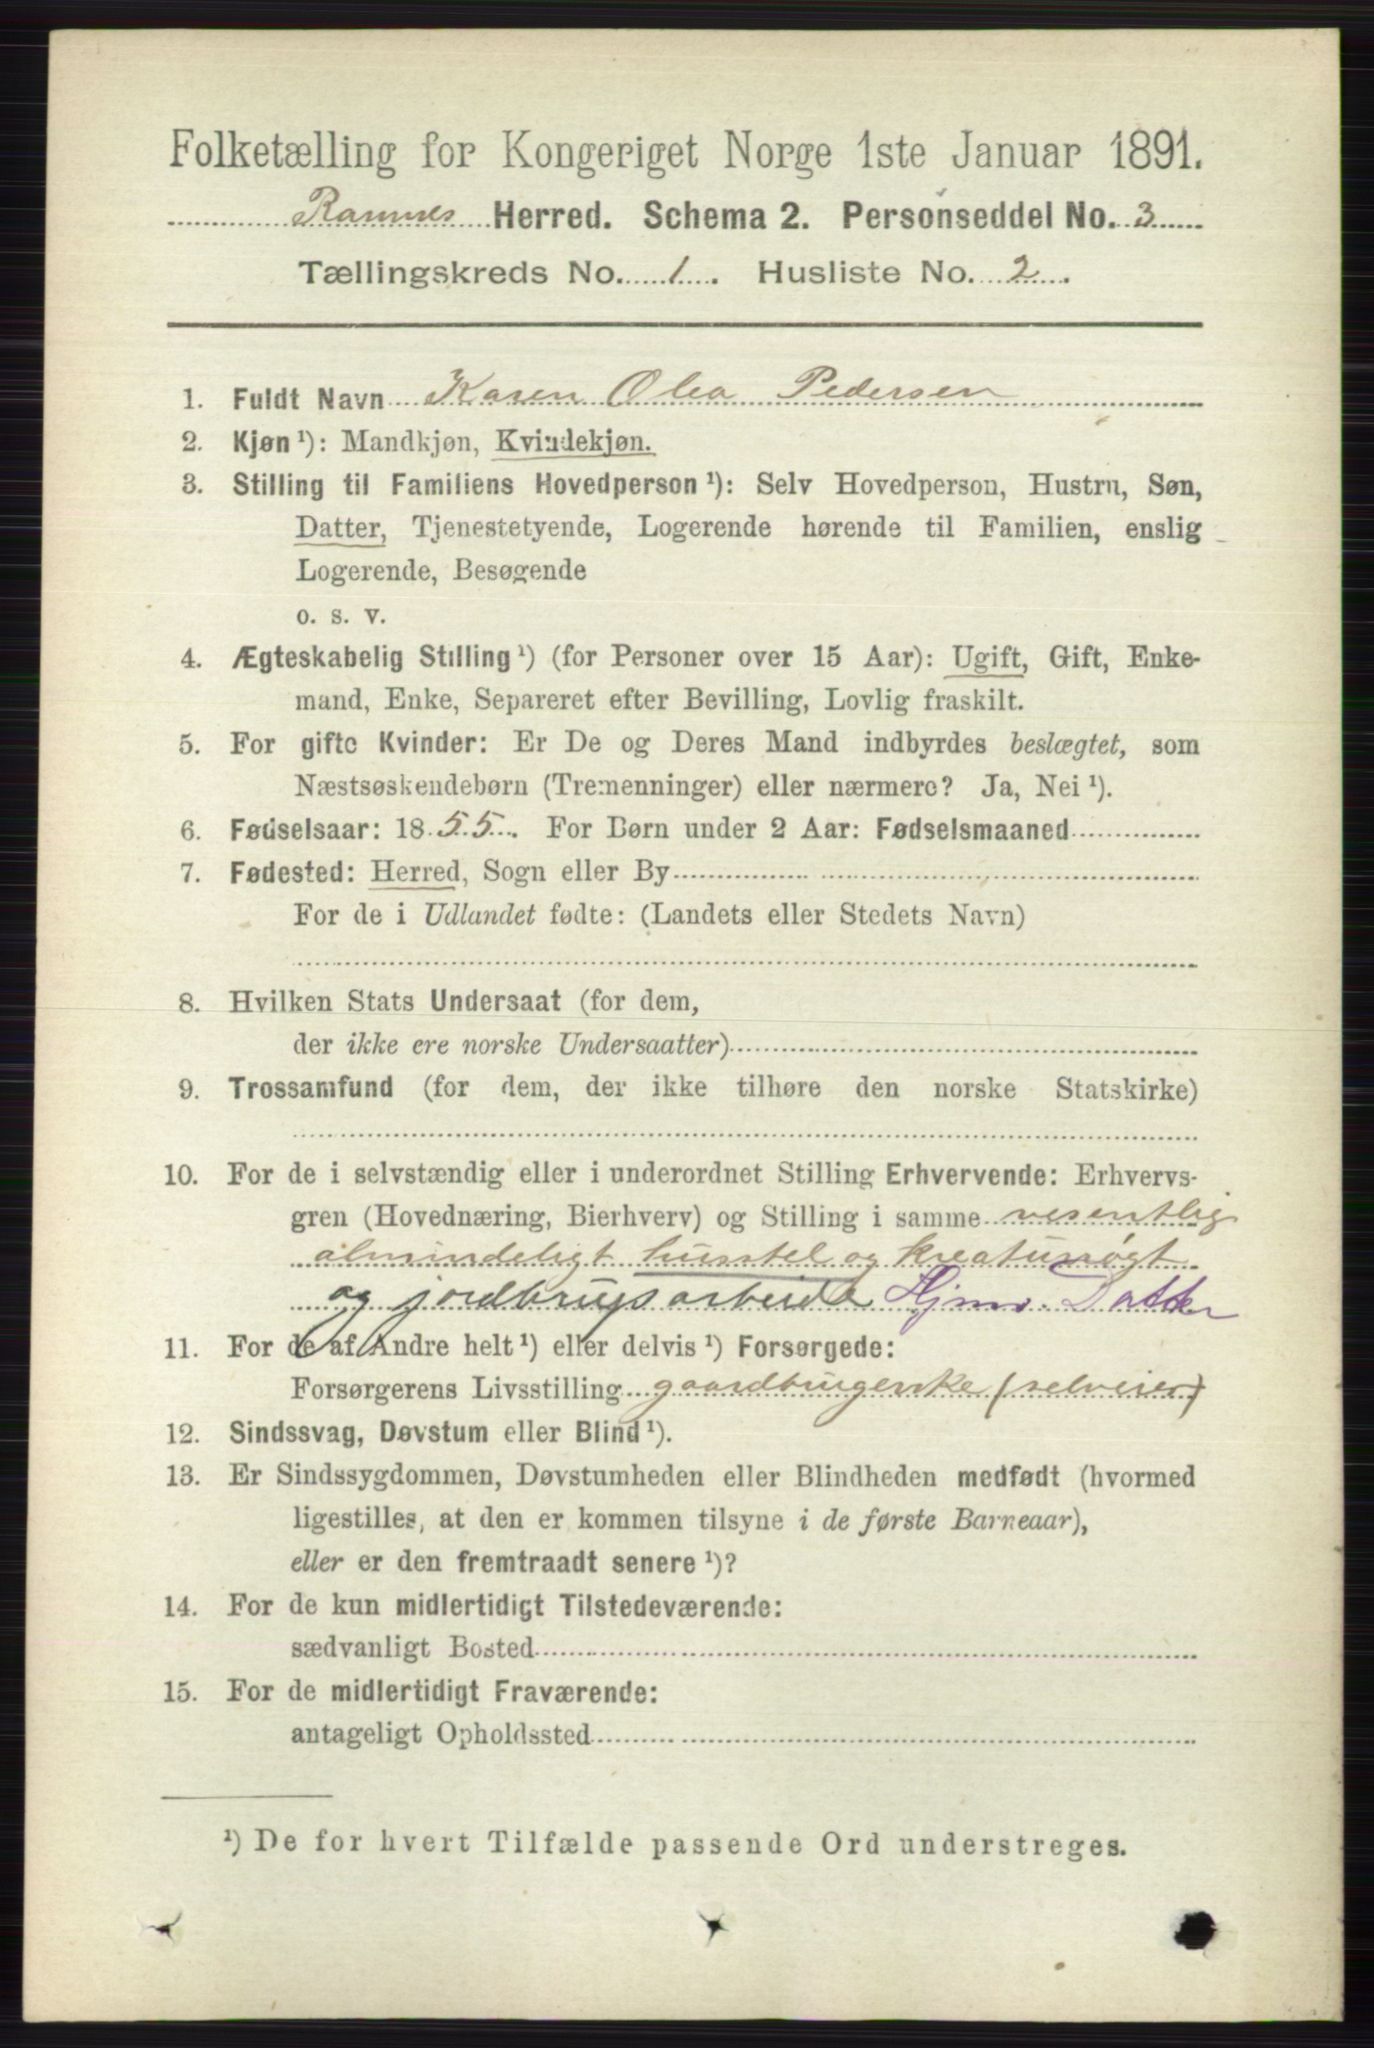 Folketælling for Kongeriget Norge 1ste Januar 1891.
Ramnes Herred. Schema 2. Personseddel No. 3
Tællingskreds No. 1. Husliste No. 2.
1. Fuldt Navn Karen Olea Pedersen
2. Kjøn ¹): Mandkjøn, Kvindekjøn.
3. Stilling til Familiens Hovedperson ¹): Selv Hovedperson, Hustru, Søn,
Datter, Tjenestetyende, Logerende hørende til Familien, enslig
Logerende, Besøgende
o. s. v.
4. Ægteskabelig Stilling ¹) (for Personer over 15 Aar): Ugift, Gift, Enke-
mand, Enke, Separeret efter Bevilling, Lovlig fraskilt.
5. For gifte Kvinder: Er De og Deres Mand indbyrdes beslægtet, som
Næstsøskendebørn (Tremenninger) eller nærmere? Ja, Nei ¹).
6. Fødselsaar: 1855. For Børn under 2 Aar: Fødselsmaaned
7. Fødested: Herred, Sogn eller By
For de i Udlandet fødte: (Landets eller Stedets Navn)
8. Hvilken Stats Undersaat (for dem,
der ikke ere norske Undersaatter)
9. Trossamfund (for dem, der ikke tilhøre den norske Statskirke)
10. For de i selvstændig eller i underordnet Stilling Erhvervende: Erhvervs-
gren (Hovednæring, Bierhverv) og Stilling i samme vesentlig
almindeligt husstel og kreaturrøgt
og jordbrugsarbeide Hjmv. Datter
11. For de af Andre helt ¹) eller delvis ¹) Forsørgede:
Forsørgerens Livsstilling gaardbrugenke (selveier)
12. Sindssvag, Døvstum eller Blind ¹).
13. Er Sindssygdommen, Døvstumheden eller Blindheden medfødt (hvormed
ligestilles, at den er kommen tilsyne i de første Barneaar),
eller er den fremtraadt senere ¹)?
14. For de kun midlertidigt Tilstedeværende:
sædvanligt Bosted
15. For de midlertidigt Fraværende:
antageligt Opholdssted
¹) De for hvert Tilfælde passende Ord understreges.